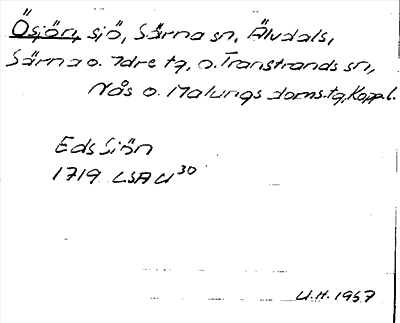 Ösjön, sjö, Särna sn, Älvdals,
Särna o. Idre tg, o. Transtrands sn,
Nås o. Malungs doms.tg, Kopp.l.
Eds Siön
1719 LSA U 30
U.H. 1957